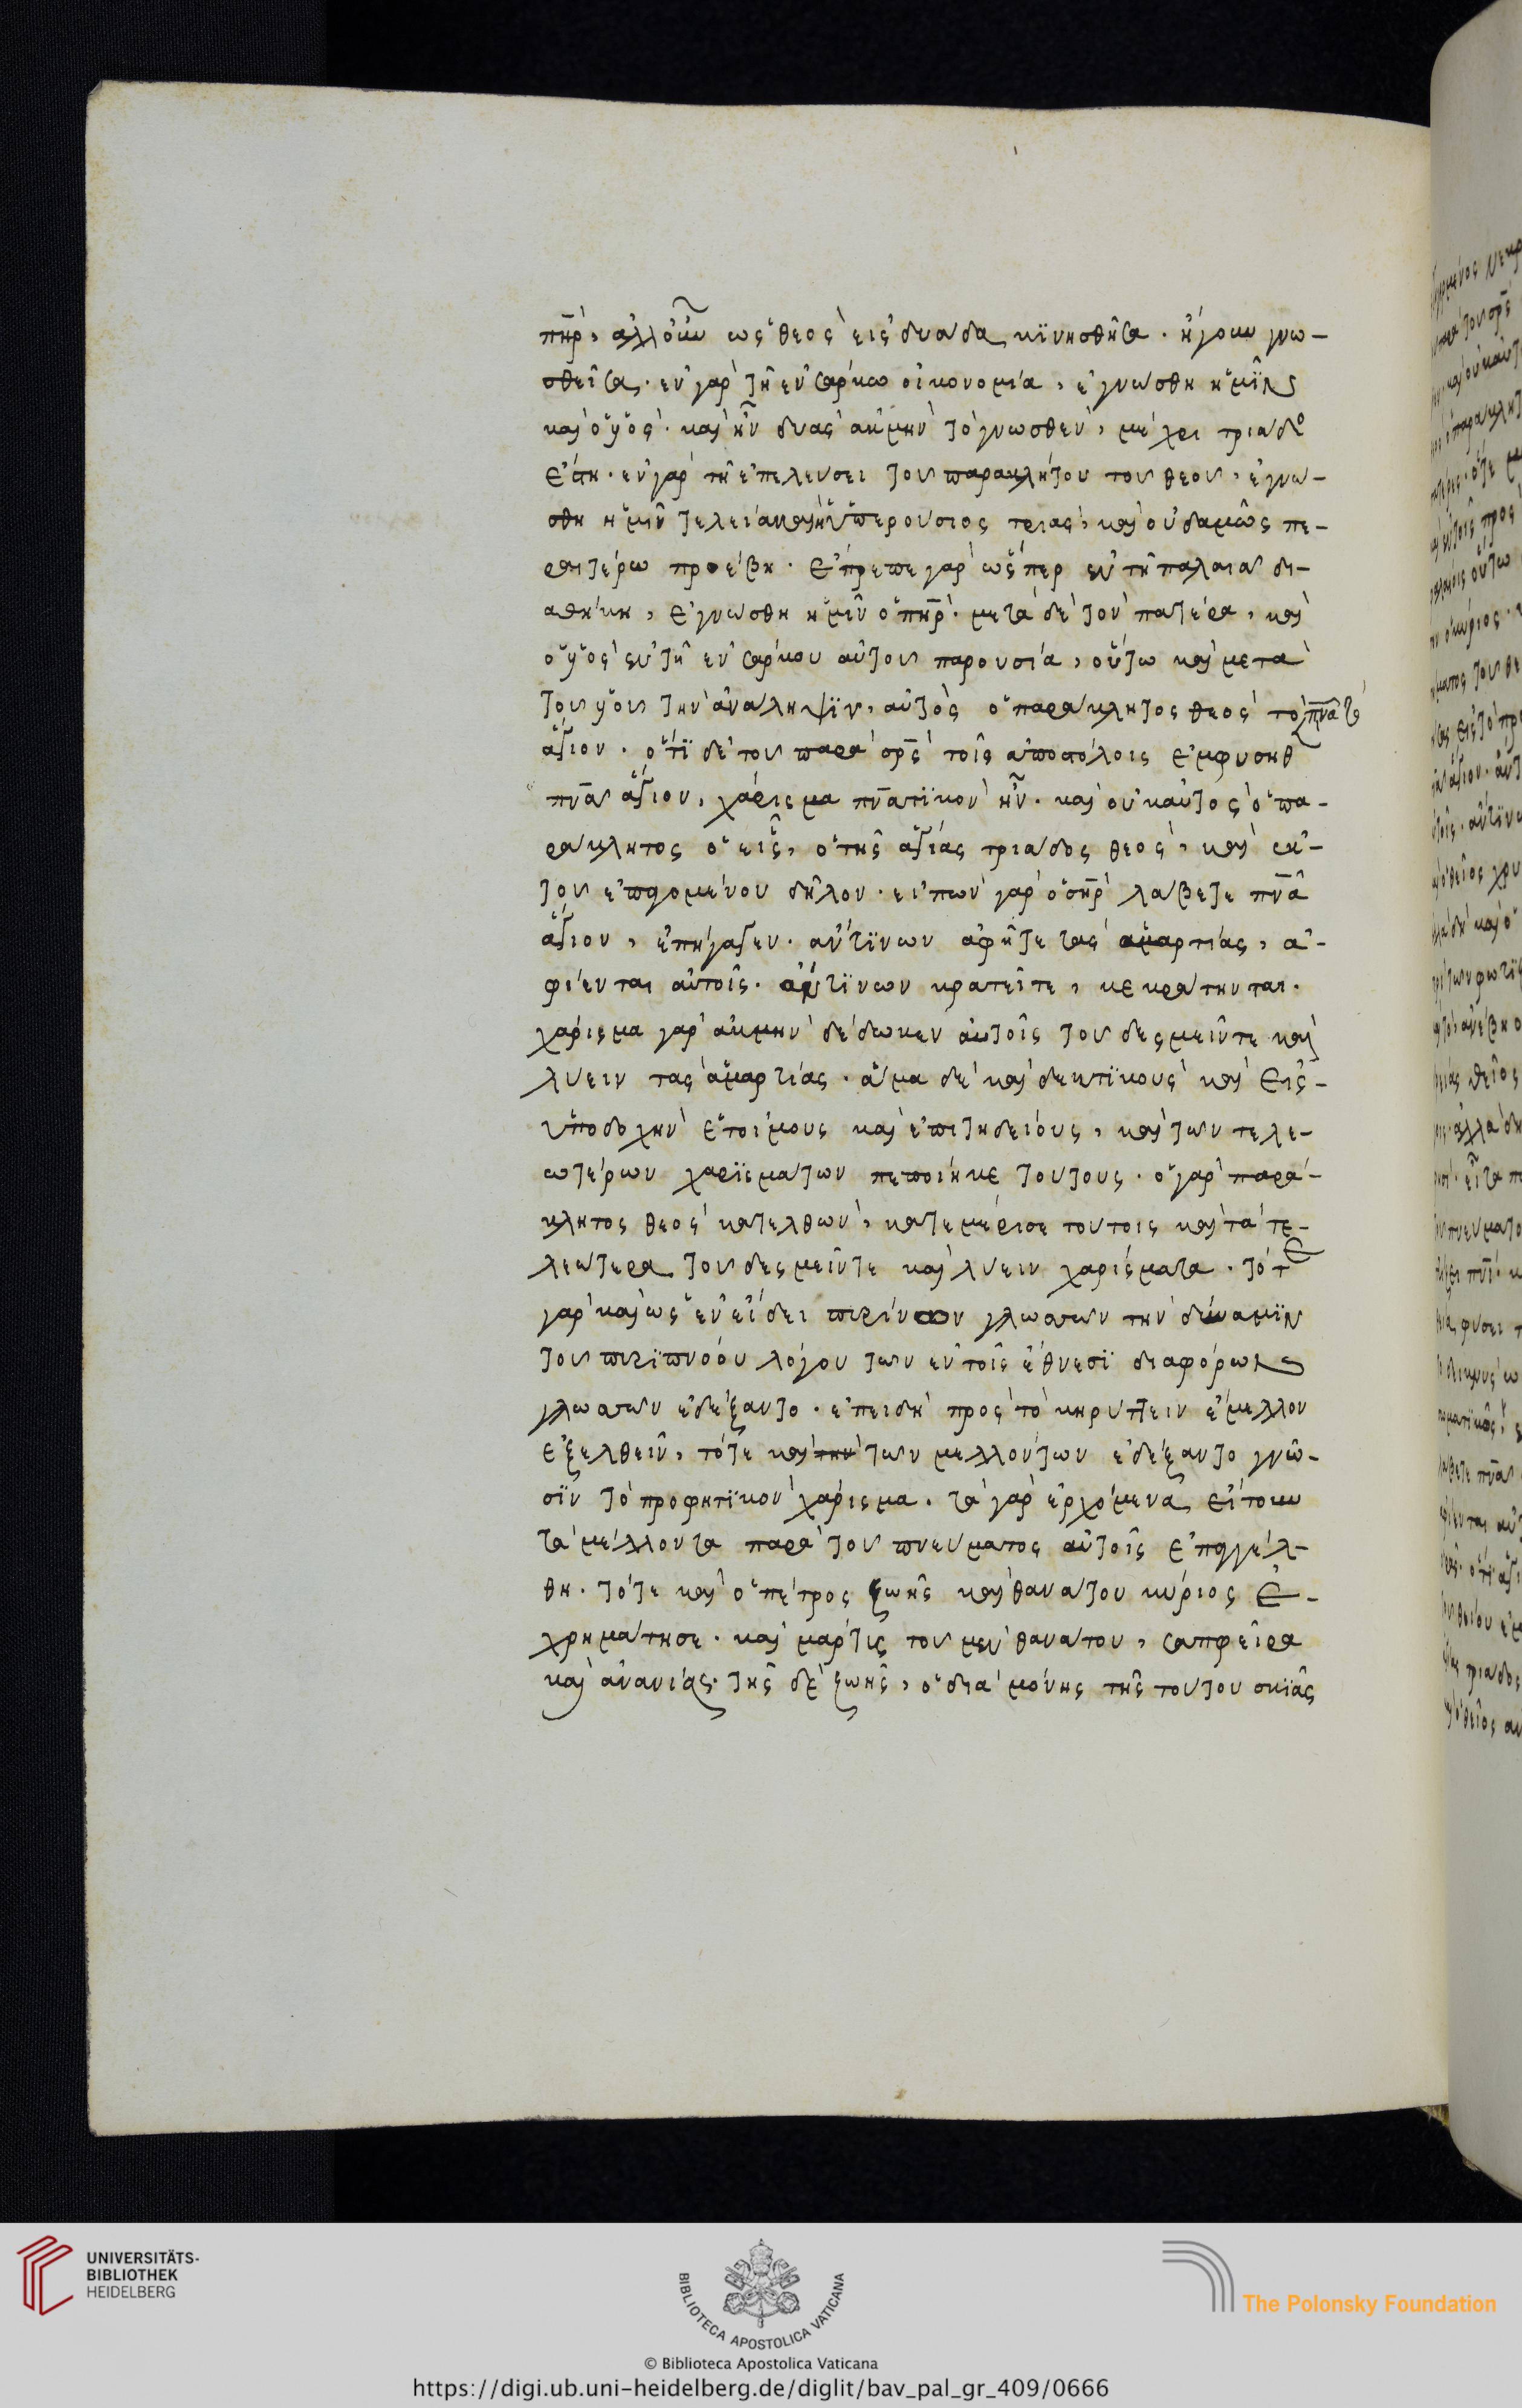 πη̅ρ̀, ἀλλοὖν ὡς θεὸς εἰς δυάδα κϊνηθῆσα. ἤγουν γνω-
σθεῖσα. ἐν γὰρ τῆ ἐνσάρκω οἰκονομία, ἐγνώσθη ἡμῖν
καὶ ὁ ὑ̅ὸς. καὶ ἦν δυὰς ἀκμὴν τὸ γνωσθὲν, μέχρι τριάδο
ἔστη. ἐν γὰρ τῆ ἐπελεύσει τοῦ παρακλήτου τοῦ θεοῦ, ἐγνώ-
σθη ἡμῖν τελεία καὶ ἡ ὑπερούσιος τριὰς, καὶ οὐδαμῶς πε-
ραιτέρω προέβη. ἔπρεπε γὰρ ὥσπερ ἐν τῆ παλαιᾶ δι-
αθήκη, ἐγνώσθη ἡμῖν ὁ πη̅ρ̀. μετὰ δὲ τὸν πατέρα, καὶ
ὁ ὑ̅ὸς ἐν τῆ ἐνσάρκου αὐτοῦ παρουσία, οὕτω καὶ μετὰ
τοῦ ὑ̅οῦ τὴν ἀνάληψϊν, αὐτὸς ὁ παράκλητος θεὸς τὸ πν̅α τὸ
ἅγιον. ὅτϊ δὲ τοῦ παρὰ σρ̅ς̀ τοῖς ἀποστόλοις ἐμφυσηθ
πν̅α ἅγιον, χάρισμα πν̅ατϊκὸν ἦν. καὶ οὐκ αὐτὸς ὁ πα-
ράκλητος ὁ εἷς, ὁ τῆς ἁγίας τριάδος θεὸς, καὶ ἐκ
τοῦ ἐπαγομένου δῆλον. εἰπὼν γὰρ ὁ ση̅ρ̀ λάβετε πν̅α
ἅγιον, ἐπήγαγεν. ἄντϊνων ἀφῆτε τὰς ἁμαρτίας, ἀ-
φίενται αὐτοῖς. ἄντϊνων κρατεῖτε, κεκράτηνται.
χάρισμα γὰρ ἀκμὴν δέδωκεν αὐτοῖς τοῦ δεσμεῖντε καὶ
λύειν τὰς ἁμαρτίας. ἅμα δὲ καὶ δεκτϊκοὺς καὶ εἰς
ὑποδοχὴν ἑτοίμους καὶ ἐπιτηδείους, καὶ τῶν τελε-
ωτέρων χαρϊσμάτων πεποίηκε τούτους. ὁ γὰρ παρά-
κλητος θεὸς κατελθὼν, κατεμέρισε τούτοις καὶ τὰ τε-
λεώτερα τοῦ δεσμεῖντε καὶ λύειν χαρίσματα. τότε
γὰρ καὶ ὡς ἐν εἴδει πυρίνων γλωσσῶν τὴν δύναμϊν
τοῦ πυρϊπνόου λόγου τῶν ἐν τοῖς ἔθνεσϊ διαφόρων
γλωσσῶν ἐδέξαντο. ἐπειδὴ πρὸς τὸ κηρύττειν ἔμελλον
ἐξελθεῖν, τότε καὶ τὴν τῶν μελλόντων ἐδέξαντο γνῶ-
σϊν τὸ προφητϊκὸν χάρισμα. τὰ γὰρ ἐρχόμενα, εἴτουν
τὰ μέλλοντα παρὰ τοῦ πνεύματος αὐτοῖς ἐπηγγέλ-
θη. τότε καὶ ὁ πέτρος ζωῆς καὶ θανάτου κύριος ἐ-
χρημάτησε. καὶ μάρτυς τοῦ μὲν θανάτου, σαπφεῖρα
καὶ ἀνανίας. τῆς δὲ ζωῆς, ὁ διὰ μόνης τῆς τούτου σκϊᾶς
UNIVERSITÄTS-
BIBLIOTHEK
HEIDELBERG
BIBLIOTECA APOSTOLICA VATICANA
The Polonsky Foundation
© Biblioteca Apostolica Vaticana
https://digi.ub.uni-heidelberg.de/diglit/bav_pal_gr_409/0666